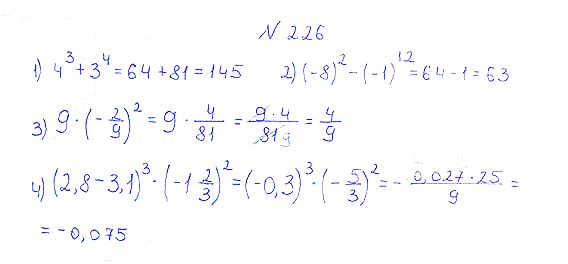 № 226
1) 4³ + 3⁴ = 64 + 81 = 145 2) (-8)² - (-1)¹² = 64 - 1 = 63
3) 9 · (- 2/9)² = 9 · 4/81 = 9 · 4/81 9 = 4/9
4) (2,8 - 3,1)³ · (-1 2/3)² = (-0,3)³ · (- 5/3)² = - 0,027 · 25/9 =
= - 0,075